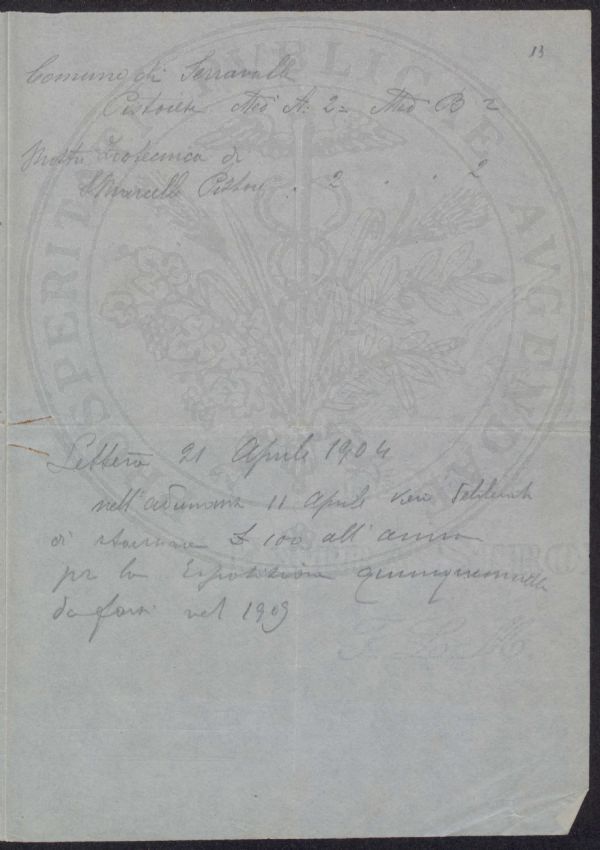 13
Comune di Serravalle
Pistoiese Med A. 2 = Med B 2
Mostra Zootecnica di
S. Marcello Pistoi. . 2 . . 2
Lettera 21 Aprile 1904
nell'adunanza 11 Aprile
di £ 100 all'anno
per la Esposizione quinquennale
da farsi nel 1909
PROSPERITATI PUBLICAE AVGENDAE